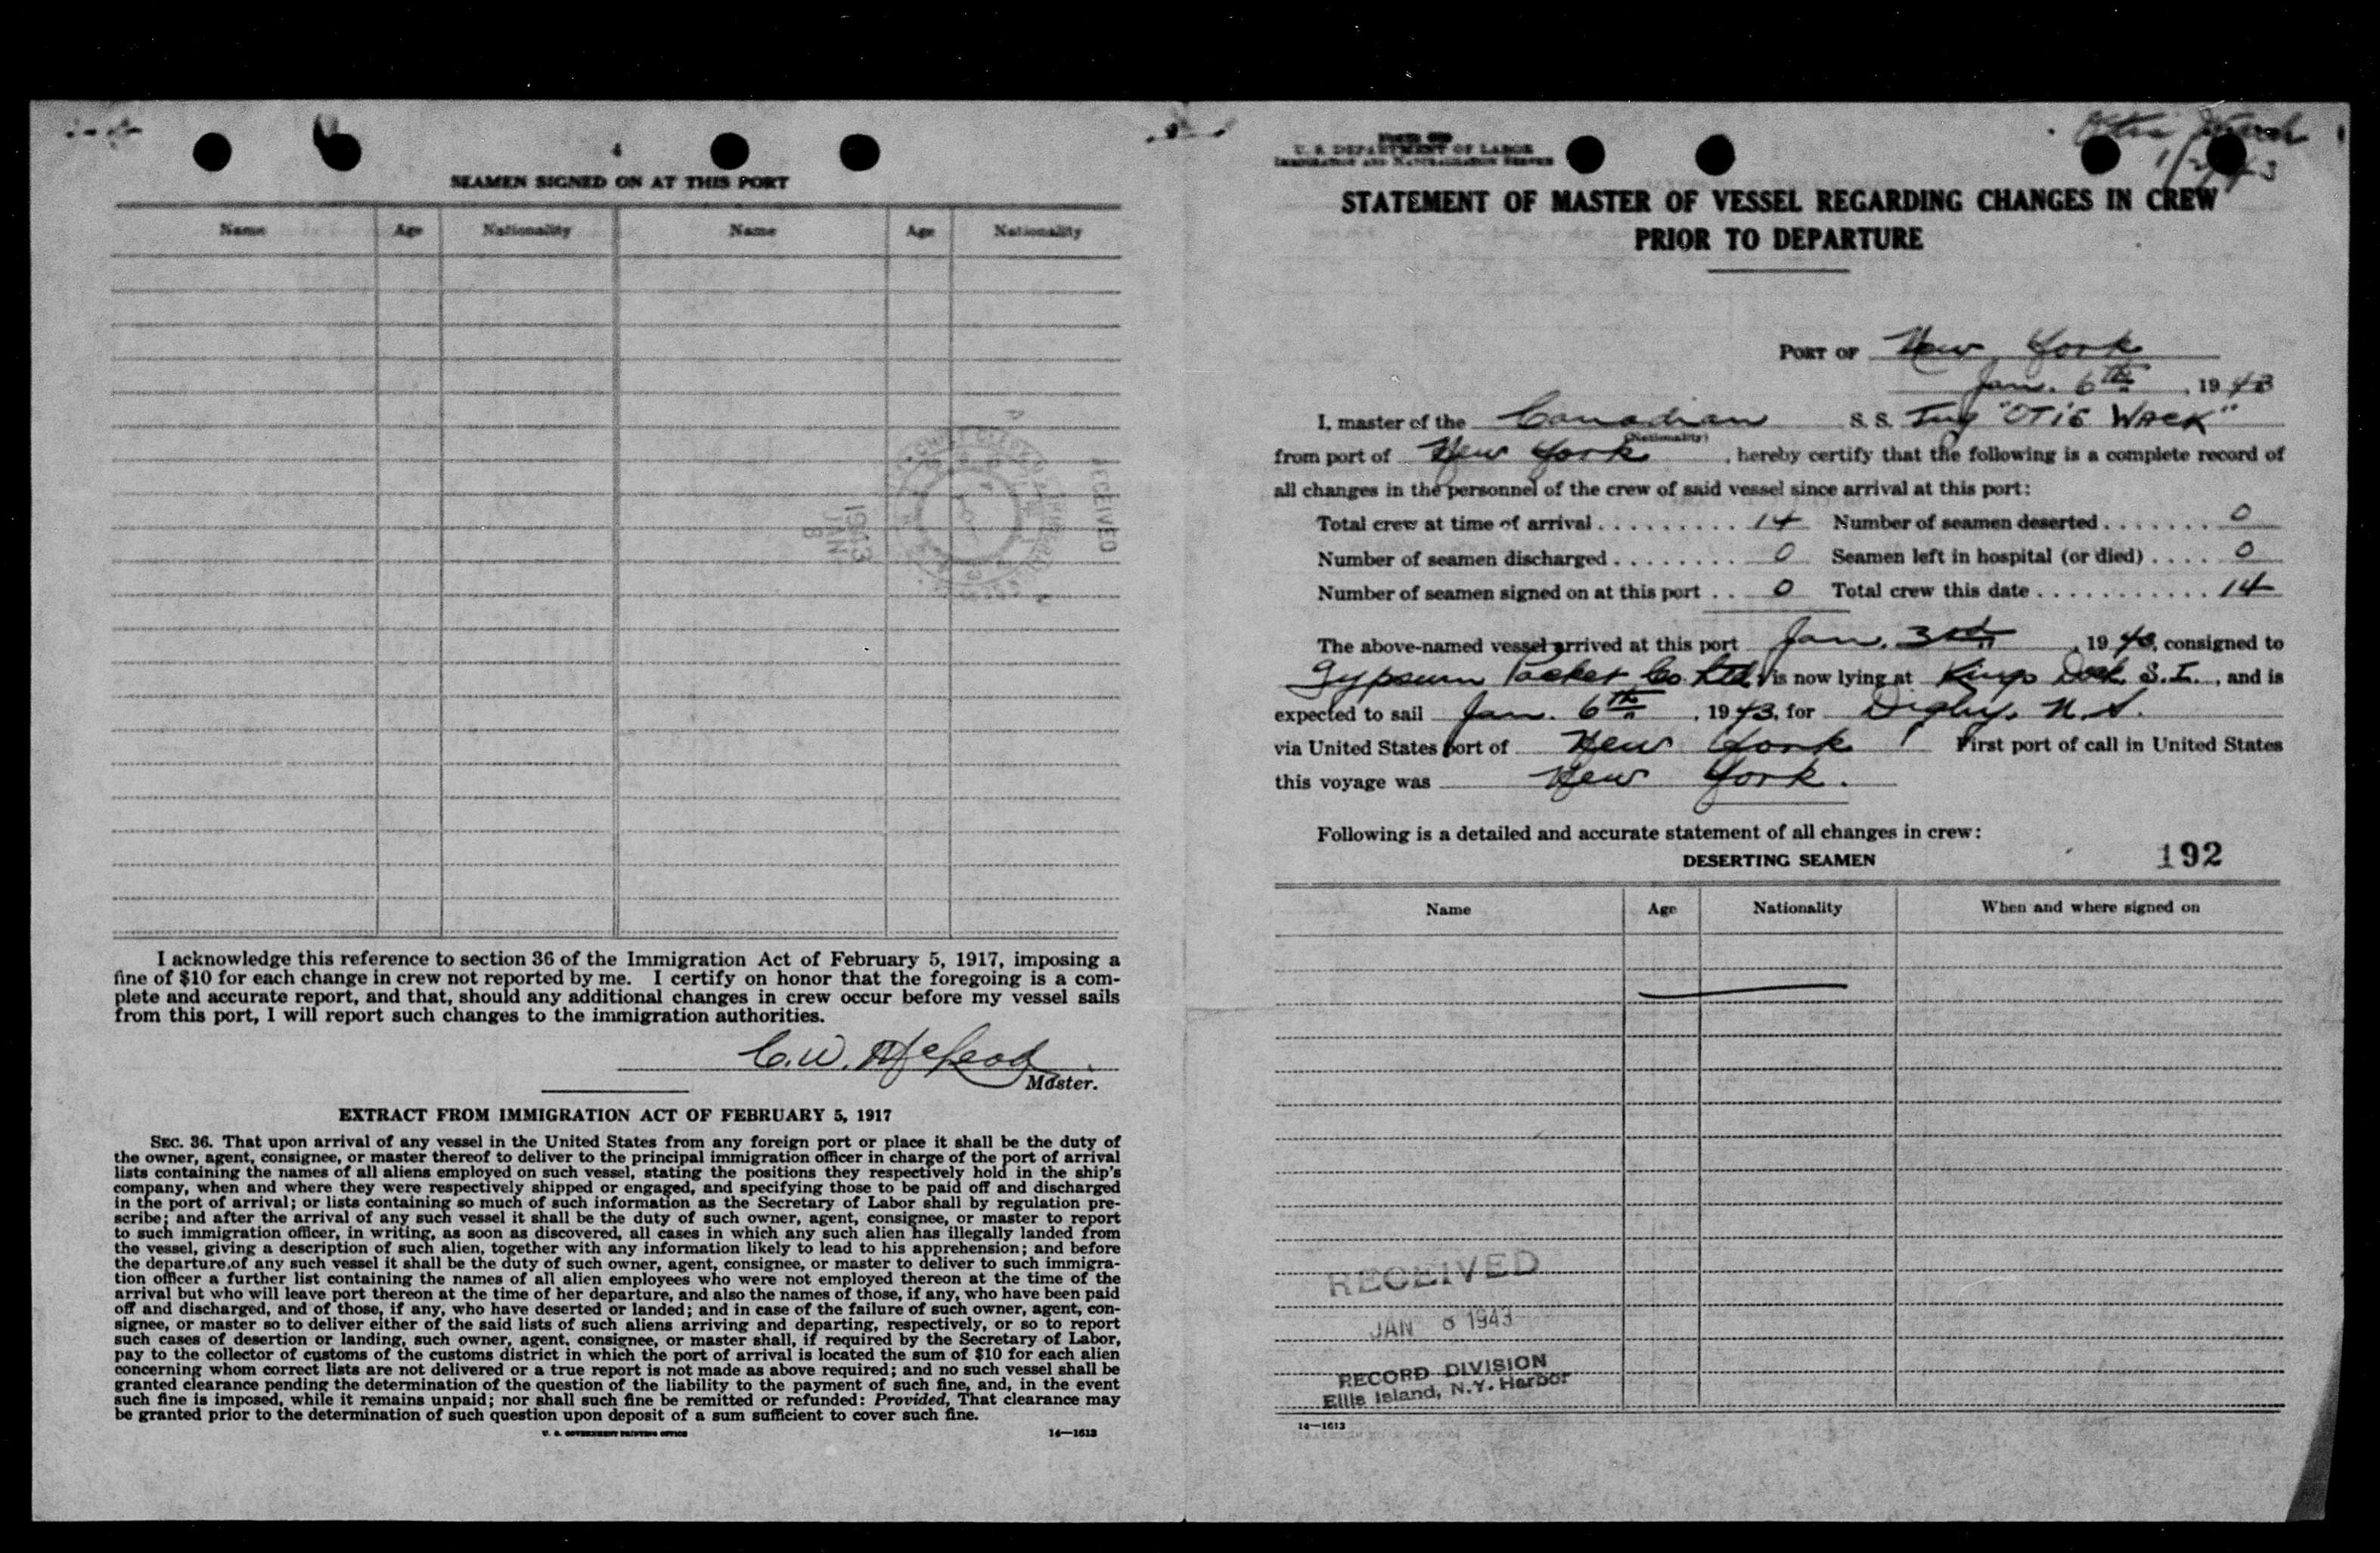 4
SEAMEN SIGNED ON AT THIS PORT
Name Age Nationality Name Age Nationality
RECEIVED
1943
JAN
8
I acknowledge this reference to section 36 of the Immigration Act of February 5, 1917, imposing a
fine of $10 for each change in crew not reported by me. I certify on honor that the foregoing is a com-
plete and accurate report, and that, should any additional changes in crew occur before my vessel sails
from this port, I will report such changes to the immigration authorities.
C. W. McLeod
Master.
EXTRACT FROM IMMIGRATION ACT OF FEBRUARY 5, 1917
SEC. 36. That upon arrival of any vessel in the United States from any foreign port or place it shall be the duty of
the owner, agent, consignee, or master thereof to deliver to the principal immigration officer in charge of the port of arrival
lists containing the names of all aliens employed on such vessel, stating the positions they respectively hold in the ship's
company, when and where they were respectively shipped or engaged, and specifying those to be paid off and discharged
in the port of arrival; or lists containing so much of such information as the Secretary of Labor shall by regulation pre-
scribe; and after the arrival of any such vessel it shall be the duty of such owner, agent, consignee, or master to report
to such immigration officer, in writing, as soon as discovered, all cases in which any such alien has illegally landed from
the vessel, giving a description of such alien, together with any information likely to lead to his apprehension; and before
the departure of any such vessel it shall be the duty of such owner, agent, consignee, or master to deliver to such immigra-
tion officer a further list containing the names of all alien employees who were not employed thereon at the time of the
arrival but who will leave port thereon at the time of her departure, and also the names of those, if any, who have been paid
off and discharged, and of those, if any, who have deserted or landed; and in case of the failure of such owner, agent, con-
signee, or master so to deliver either of the said lists of such aliens arriving and departing, respectively, or so to report
such cases of desertion or landing, such owner, agent, consignee, or master shall, if required by the Secretary of Labor,
pay to the collector of customs of the customs district in which the port of arrival is located the sum of $10 for each alien
concerning whom correct lists are not delivered or a true report is not made as above required; and no such vessel shall be
granted clearance pending the determination of the question of the liability to the payment of such fine, and, in the event
such fine is imposed, while it remains unpaid; nor shall such fine be remitted or refunded: Provided, That clearance may
be granted prior to the determination of such question upon deposit of a sum sufficient to cover such fine.
U. S. GOVERNMENT PRINTING OFFICE 14—1613
U. S. DEPARTMENT OF LABOR
IMMIGRATION AND NATURALIZATION SERVICE
STATEMENT OF MASTER OF VESSEL REGARDING CHANGES IN CREW
PRIOR TO DEPARTURE
PORT OF New York
Jan. 6th, 1943
I, master of the Canadian S. S. Tug "OTIS WACK"
(Nationality)
from port of New York, hereby certify that the following is a complete record of
all changes in the personnel of the crew of said vessel since arrival at this port:
Total crew at time of arrival . . . . . . . . . 14 Number of seamen deserted . . . . . . . 0
Number of seamen discharged . . . . . . . . 0 Seamen left in hospital (or died) . . . . 0
Number of seamen signed on at this port . . 0 Total crew this date . . . . . . . . . . . 14
The above-named vessel arrived at this port Jan. 3rd, 1943, consigned to
Gypsum Packet Co. Ltd., is now lying at Kings Dock, S.I., and is
expected to sail Jan. 6th, 1943, for Digby, N.S.
via United States port of New York First port of call in United States
this voyage was New York.
Following is a detailed and accurate statement of all changes in crew:
DESERTING SEAMEN 192
Name Age Nationality When and where signed on
RECEIVED
JAN 8 1943
RECORD DIVISION
Ellis Island, N.Y. Harbor
14—1613